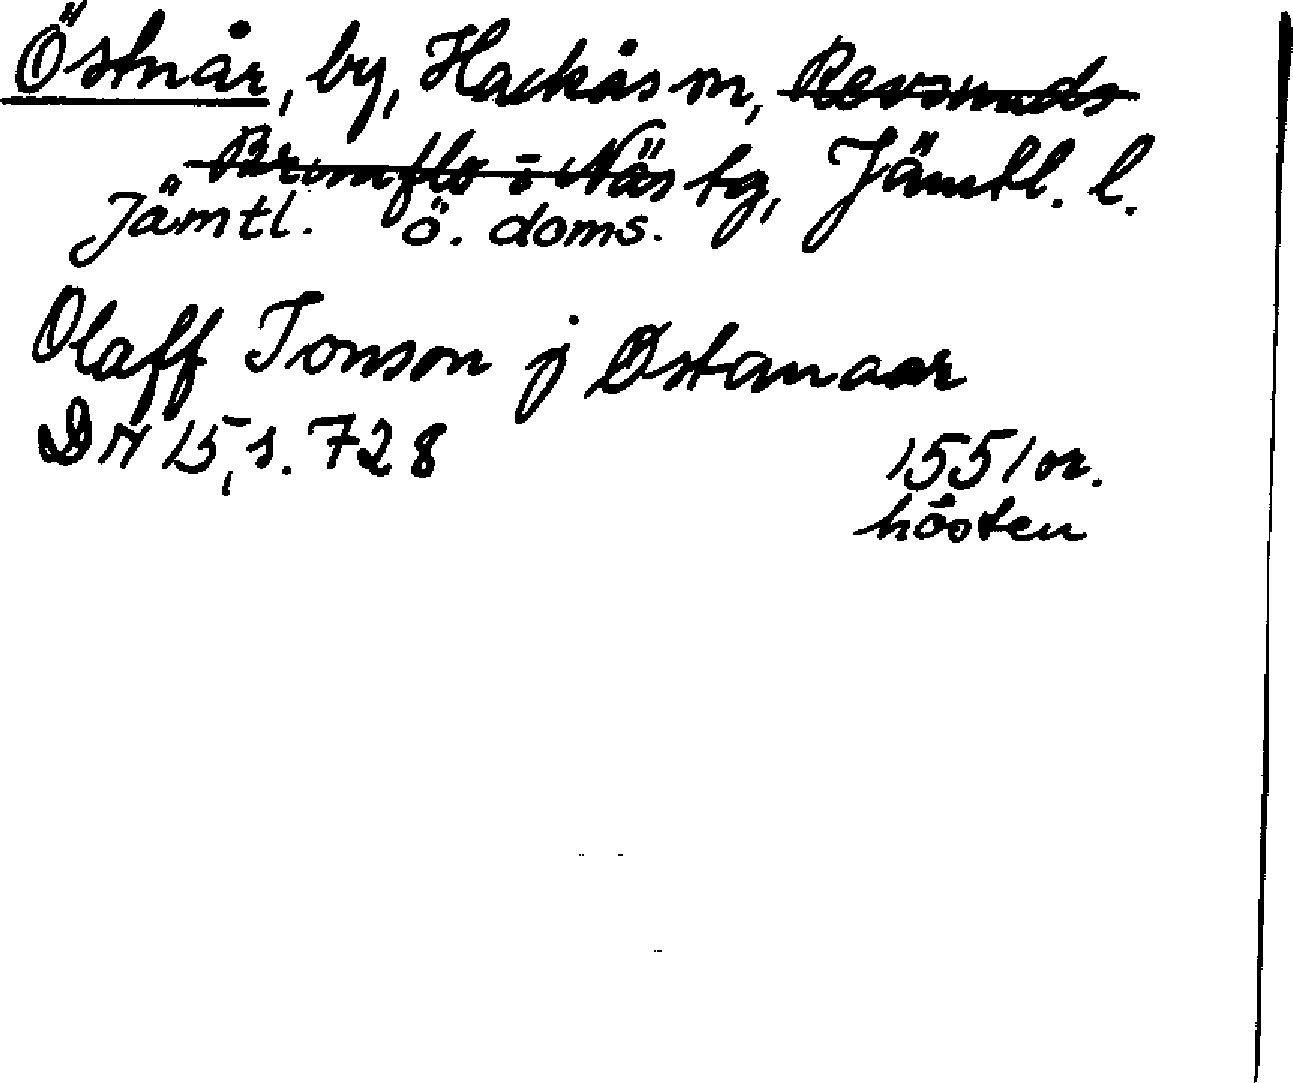 Östnår, by, Hackås sn, Revsunds
Brunflo o Näs tg, Jämtl. l.
Jämtl. ö. doms.
Olaff Jonson j Østanaar
DN 15, s. 728 1551 or.
hösten